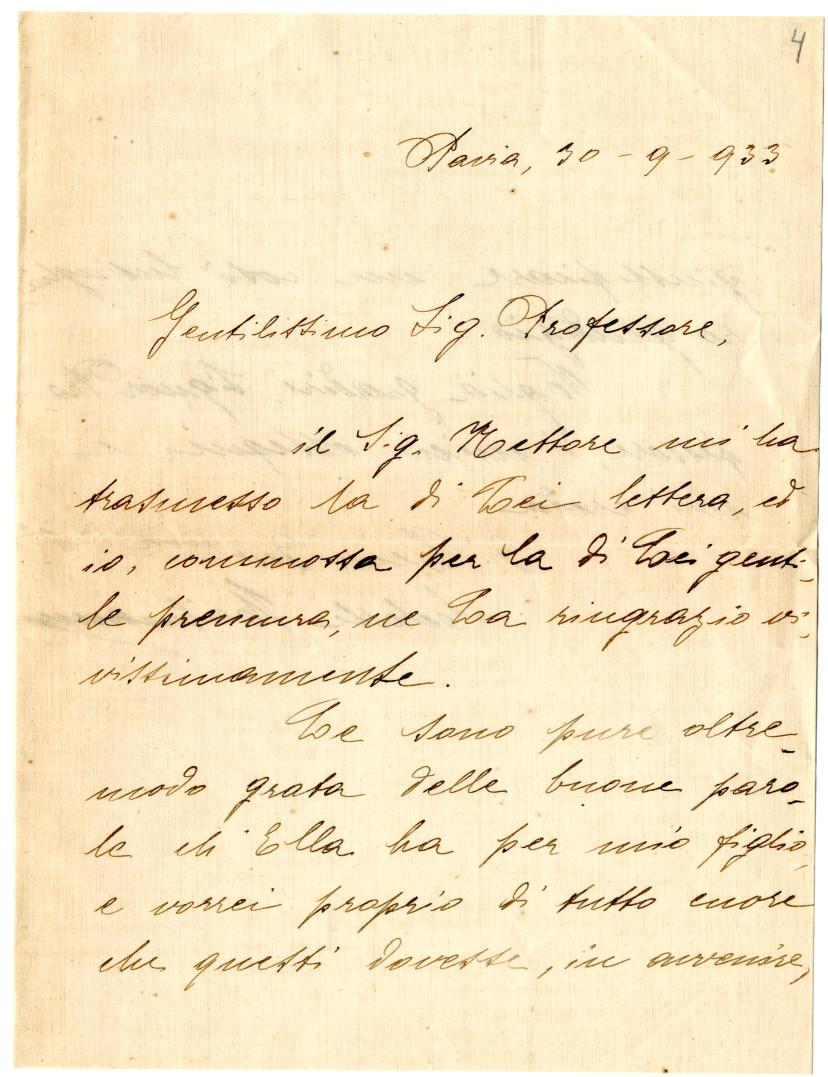 4
Pavia, 30 - 9 - 933
Gentilissimo Sig. Professore,
il Sig. Rettore mi ha
trasmesso la di Lei lettera, ed
io, commossa per la di Lei genti-
le premura, ne La ringrazio vi-
vissimamente.
Le sono pure oltre-
modo grata delle buone paro-
le ch' Ella ha per mio figlio,
e vorrei proprio di tutto cuore
che questi dovesse, in avvenire,